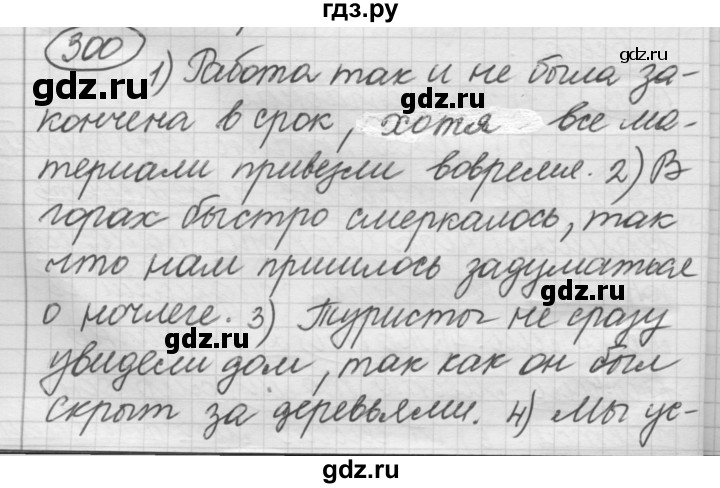 гдз.ру
300
gdz.ru
1) Работа так и не была за-
gdz.ru gdz.ru
кончена в срок, хотя все ма-
териали привезли вовремя. 2) В
горах быстро смеркалось, так
что нам пришлось задуматься
gdz.ru
о ночлеге. 3) Туристы не сразу
gdz.ru
увидели дом, так как он был
скрыт за деревьями. 4) Мы ус-
gdz.ru gdz.ru
gdz.ru